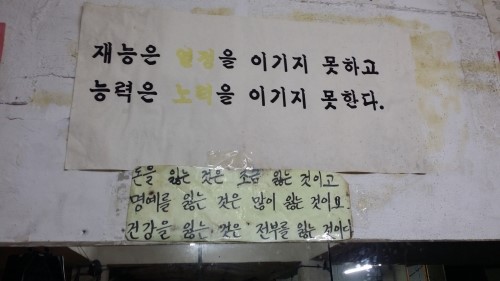 재능은 열정을 이기지 못하고
능력은 노력을 이기지 못한다.
돈을 잃는 것은 조금 잃는 것이고
명예를 잃는 것은 많이 잃는 것이요.
건강을 잃는 것은 전부를 잃는 것이다